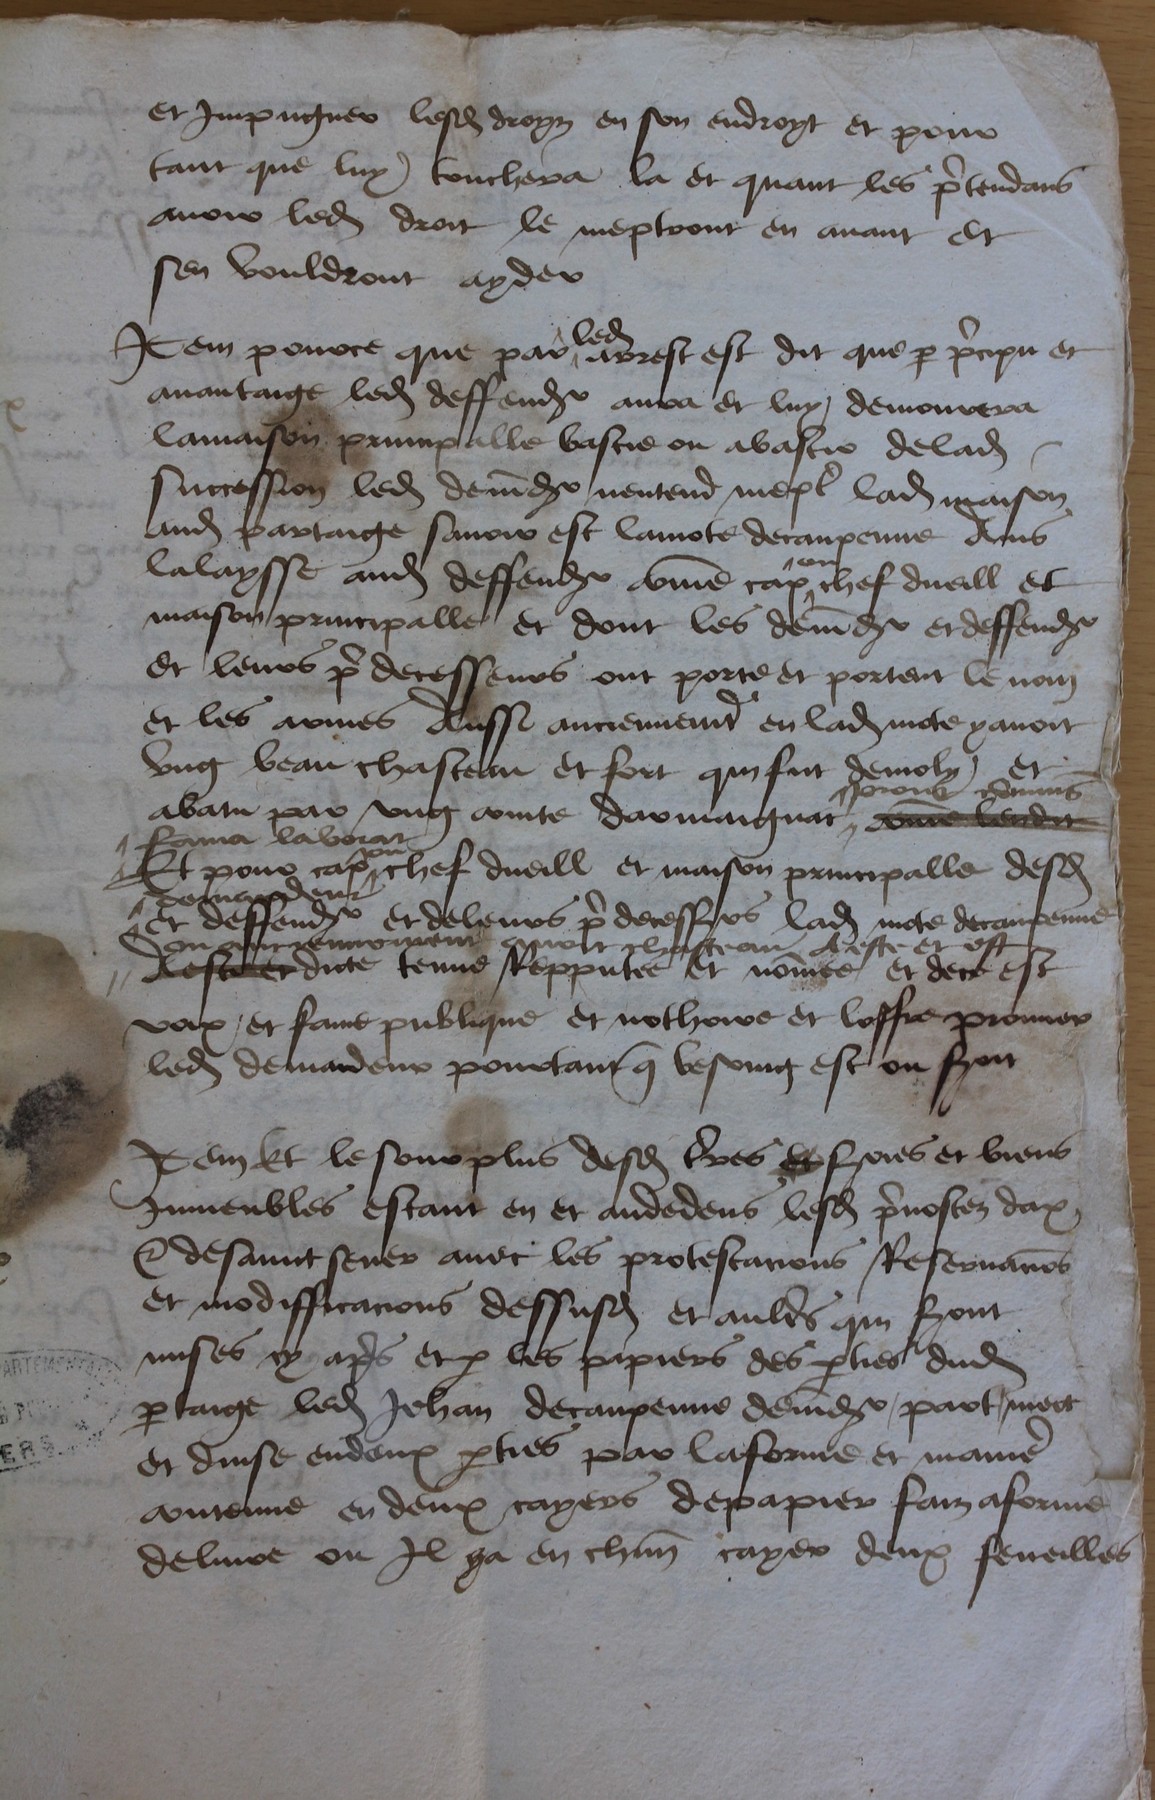 et Impugner lesd droyz en son endroyt et pour
tant que luy touchera la et quant les p̃tendans
avoir led droit le meptront en avant et
sen vouldront ayder
Item pource que par led arrest est dit que p p̃cipu et
avantaige led deffendr aura et luy demourera
lamaison principalle bastie ou abastir delad
succession led demãdr nentend mept̃ lad maison
aud partaige savoir est lamote decaupenne Ains
lalaysse aud deffendr cõme cap ou chef dueill et
maison principalle et dont les demãdr et deffendr
et leurs p̃decesseurs ont porte et portent le nom
et les armes Aussi anciennemt̃ en lad mote y avoit
ung beau chasteau et fort qui fut demoly et
abatu par ung conte darmaignac
fama laborat
Et pour cap ou chef dueill et maison principalle desd
demandeur
et deffendr et deleurs p̃decessrs lad mote decaupenne
ou anciennement avoit chasteau A este et est
Aeste et dicte tenue Repputee et nõmee et dece est
voix et fame publique et nothoire et loffre prouver
led demandeur pourtant q̃ besoing est ou seroit
Item Et le sourplus desd t̃res et f̃ies et biens
Inmeubles estant en et audedens lesd p̃vostez dax
& desainct sever avec les protestacions Reservaciõs
et modifficacions dessusd et aultr̃s qui seront
mises cy ap̃s et p les papiers des p̃ties dud
ptaige led Jehan decaupenne demãdr part mect
et divise endeux p̃ties par laforme et maniẽ
contenue en deux cayers depapier faiz aforme
delivre ou Il ya en chũn cayer deux feueilles